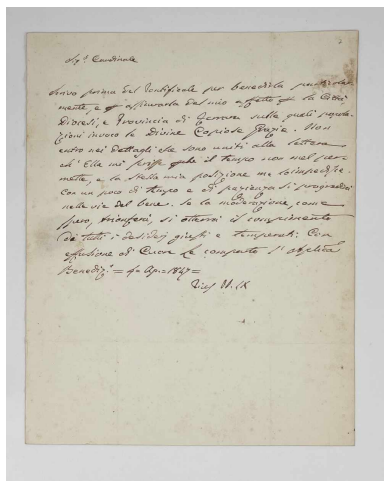 Sig.r Cardinale
Scrivo prima del Pontificale per benedirla particolar
mente, e assicurarla del mio affetto per la Città
Diocesi, e Provincia di Ferrara sulle quali popola
zioni invoco le Divine Copiose Grazie. Non
entro nei dettagli che sono uniti alla lettera
ch'Ella mi scrisse perchè il tempo non mel per
mette, e la stessa mia posizione me lo impedisce.
Con un poco di tempo e di pazienza si progredirà
nelle vie del bene. Se la moderazione, come
spero, trionferà, si otterrà il compimento
di tutti i desiderj giusti e temperati. Con
effusione di Cuore Le comparto l'Apstlica
Benediz.e = 4 Ap. = 1847 =
Pius PP. IX